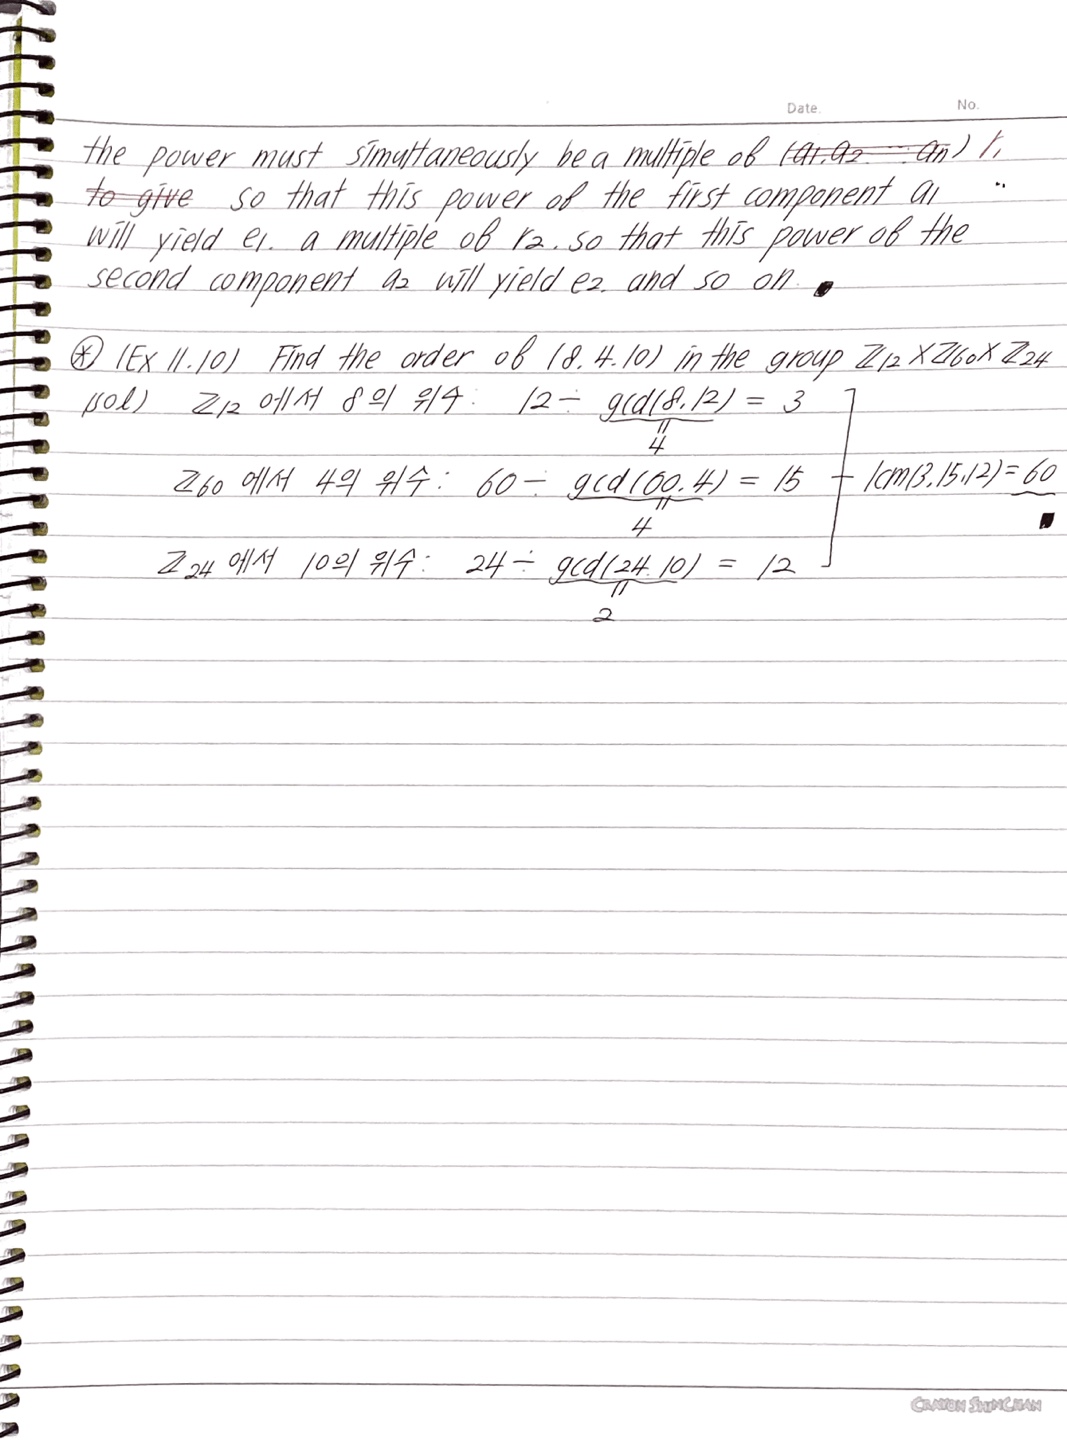 Date. No.
the power must simultaneously be a multiple of (a1, a2 ... an) r1
to give so that this power of the first component a1
will yield e1. a multiple of r2. so that this power of the
second component a2 will yield e2. and so on. ■
⊛ (Ex 11.10) Find the order of (8.4.10) in the group ℤ12 × ℤ60 × ℤ24
sol) ℤ12 에서 8의 위수: 12 ÷ gcd(8.12) = 3
4
ℤ60 에서 4의 위수: 60 ÷ gcd(60.4) = 15 lcm(3.15.12) = 60
4 ■
ℤ24 에서 10의 위수: 24 ÷ gcd(24.10) = 12
2
CRAYON SHINCHAN